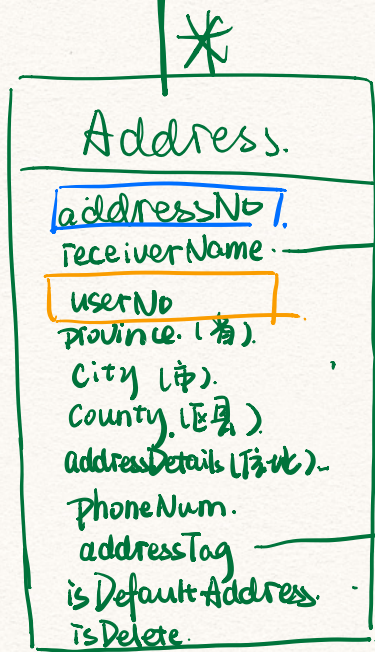 *
Address.
addressNo
receiverName.
userNo
province.(省).
City (市).
County.(区县)
addressDetails(住址).
phoneNum.
addressTag
isDefaultAddress.
isDelete.